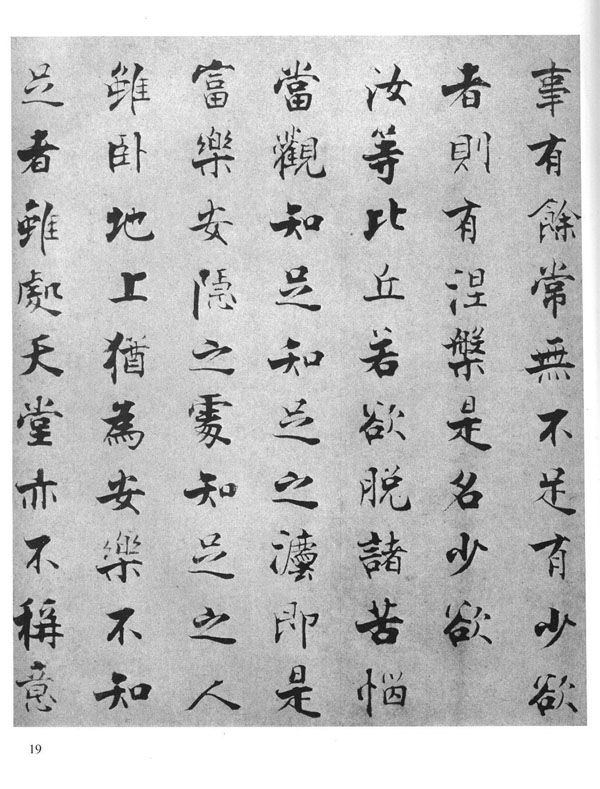 事有餘常無不足有少欲
者則有涅槃是名少欲
汝等比丘若欲脱諸苦惱
當觀知足知足之灋即是
富樂安隱之處知足之人
雖臥地上猶為安樂不知
足者雖處天堂亦不稱意
19